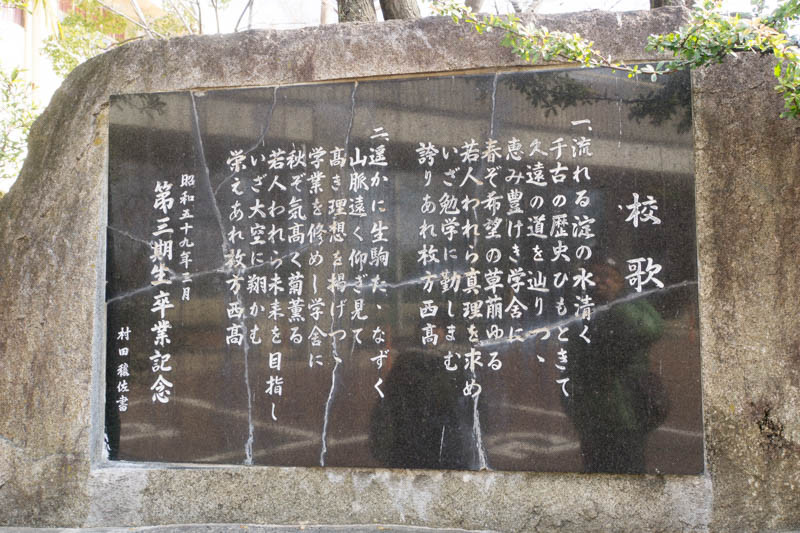 校歌
一、流れる淀の水清く
千古の歴史ひもときて
久遠の道を辿りつゝ
恵み豊けき学舎に
春ぞ希望の草萠ゆる
若人われら真理を求め
いざ勉学に勤しまむ
誇りあれ枚方西高
二、遥かに生駒たゝなずく
山脈遠く仰ぎ見て
高き理想を掲げつゝ
学業を修めし学舎に
秋ぞ気高く菊薫る
若人われら未来を目指し
いざ大空に翔かむ
栄えあれ枚方西高
昭和五十九年三月
第三期生卒業記念
村田穣佐書